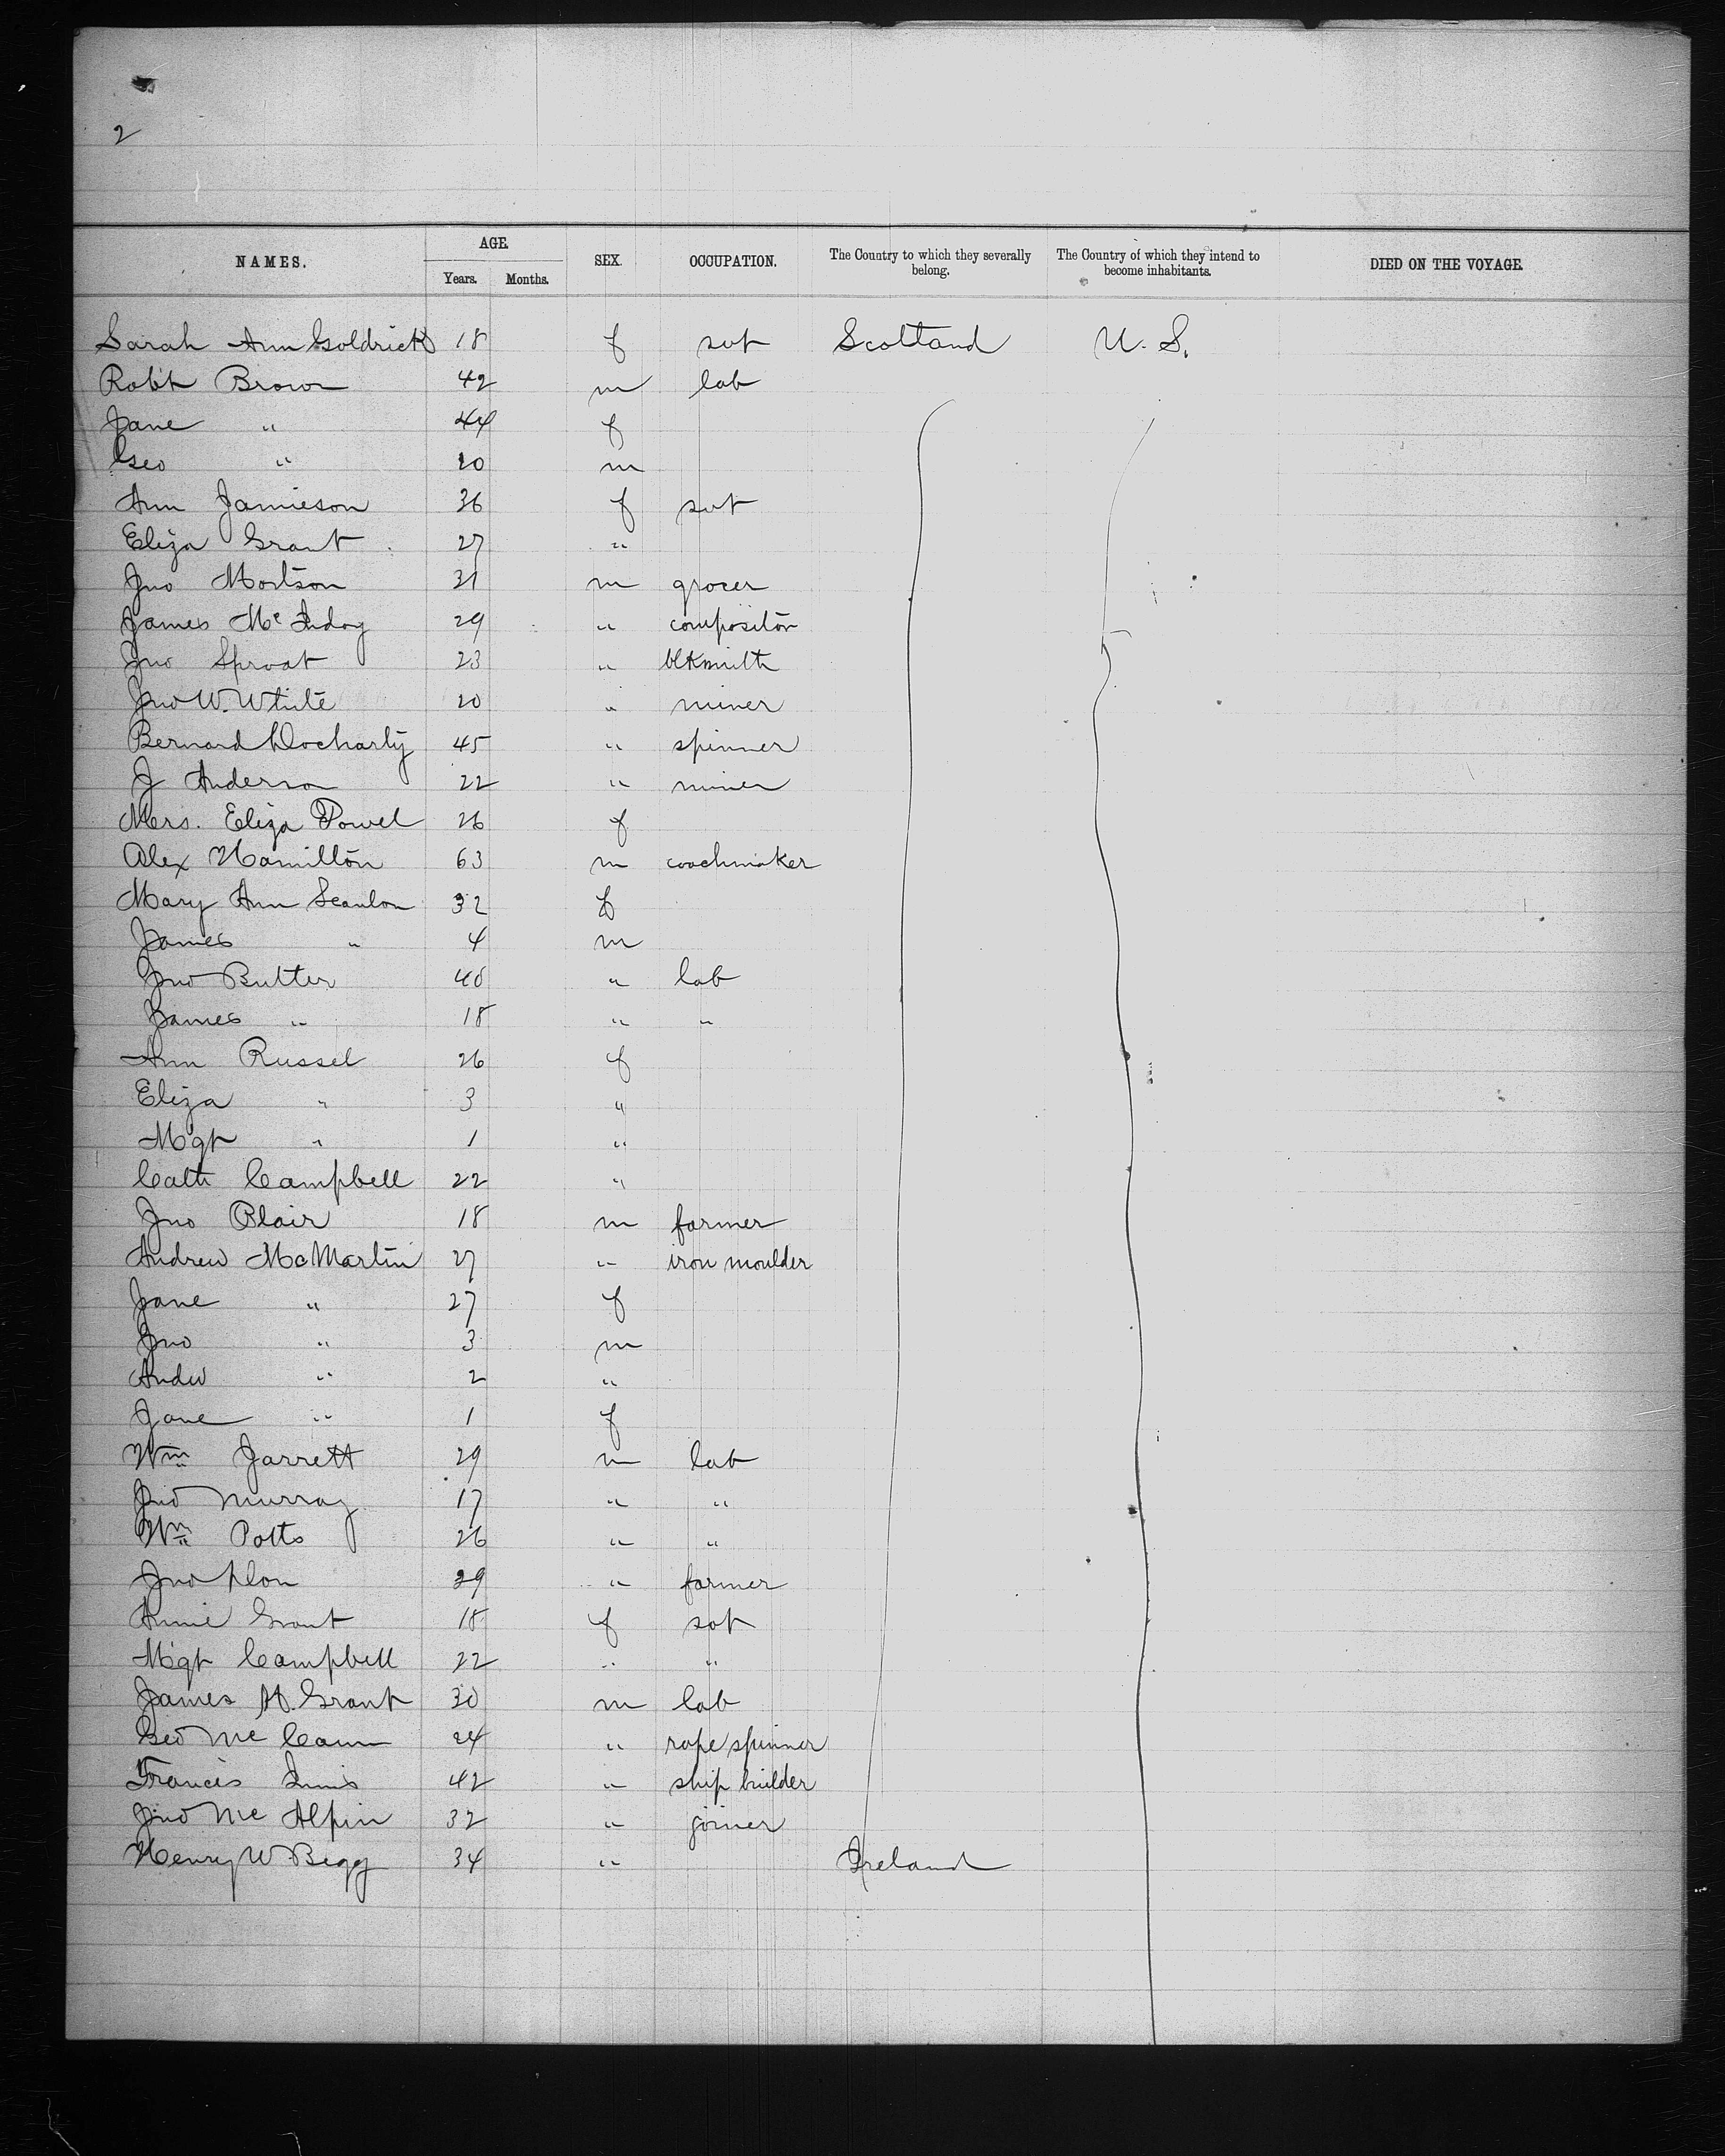 2
NAMES. AGE. SEX. OCCUPATION. The Country to which they severally belong. The Country of which they intend to become inhabitants. DIED ON THE VOYAGE.
Years. Months.
Sarah Ann Goldrick 18 f svt Scotland U. S.
Robt Brown 42 m lab
Jane " 44 f
Geo " 20 m
Ann Jamieson 36 f svt
Eliza Grant 27 "
Jno 31 m grocer
James McIndoy 29 " compositor
Jno Sproat 23 " blksmith
Jno W. White 20 " miner
Bernard Docharty 45 " spinner
J Anderson 22 " miner
Mrs. Eliza Powel 26 f
Alex Hamilton 63 m coachmaker
Mary Ann Scanlon 32 f
James " 4 m
Jno Butter 40 " lab
James " 18 " "
Ann Russel 26 f
Eliza " 3 "
Mgt " 1 "
Cath Campbell 22 "
Jno Blair 18 m farmer
Andrew McMartin 27 " iron moulder
Jane " 27 f
Jno " 3 m
Andw " 2 "
Jane " 1 f
Wm Jarrett 29 m lab
Jno Murray 17 " "
Wm Potts 26 " "
Jno 29 " farmer
Annie Grant 18 f svt
Mgt Campbell 22 " "
James H. Grant 30 m lab
Geo McCann 24 " rope spinner
Francis Innis 42 " ship builder
Jno McAlpin 32 " joiner
Henry W Begg 34 " Ireland